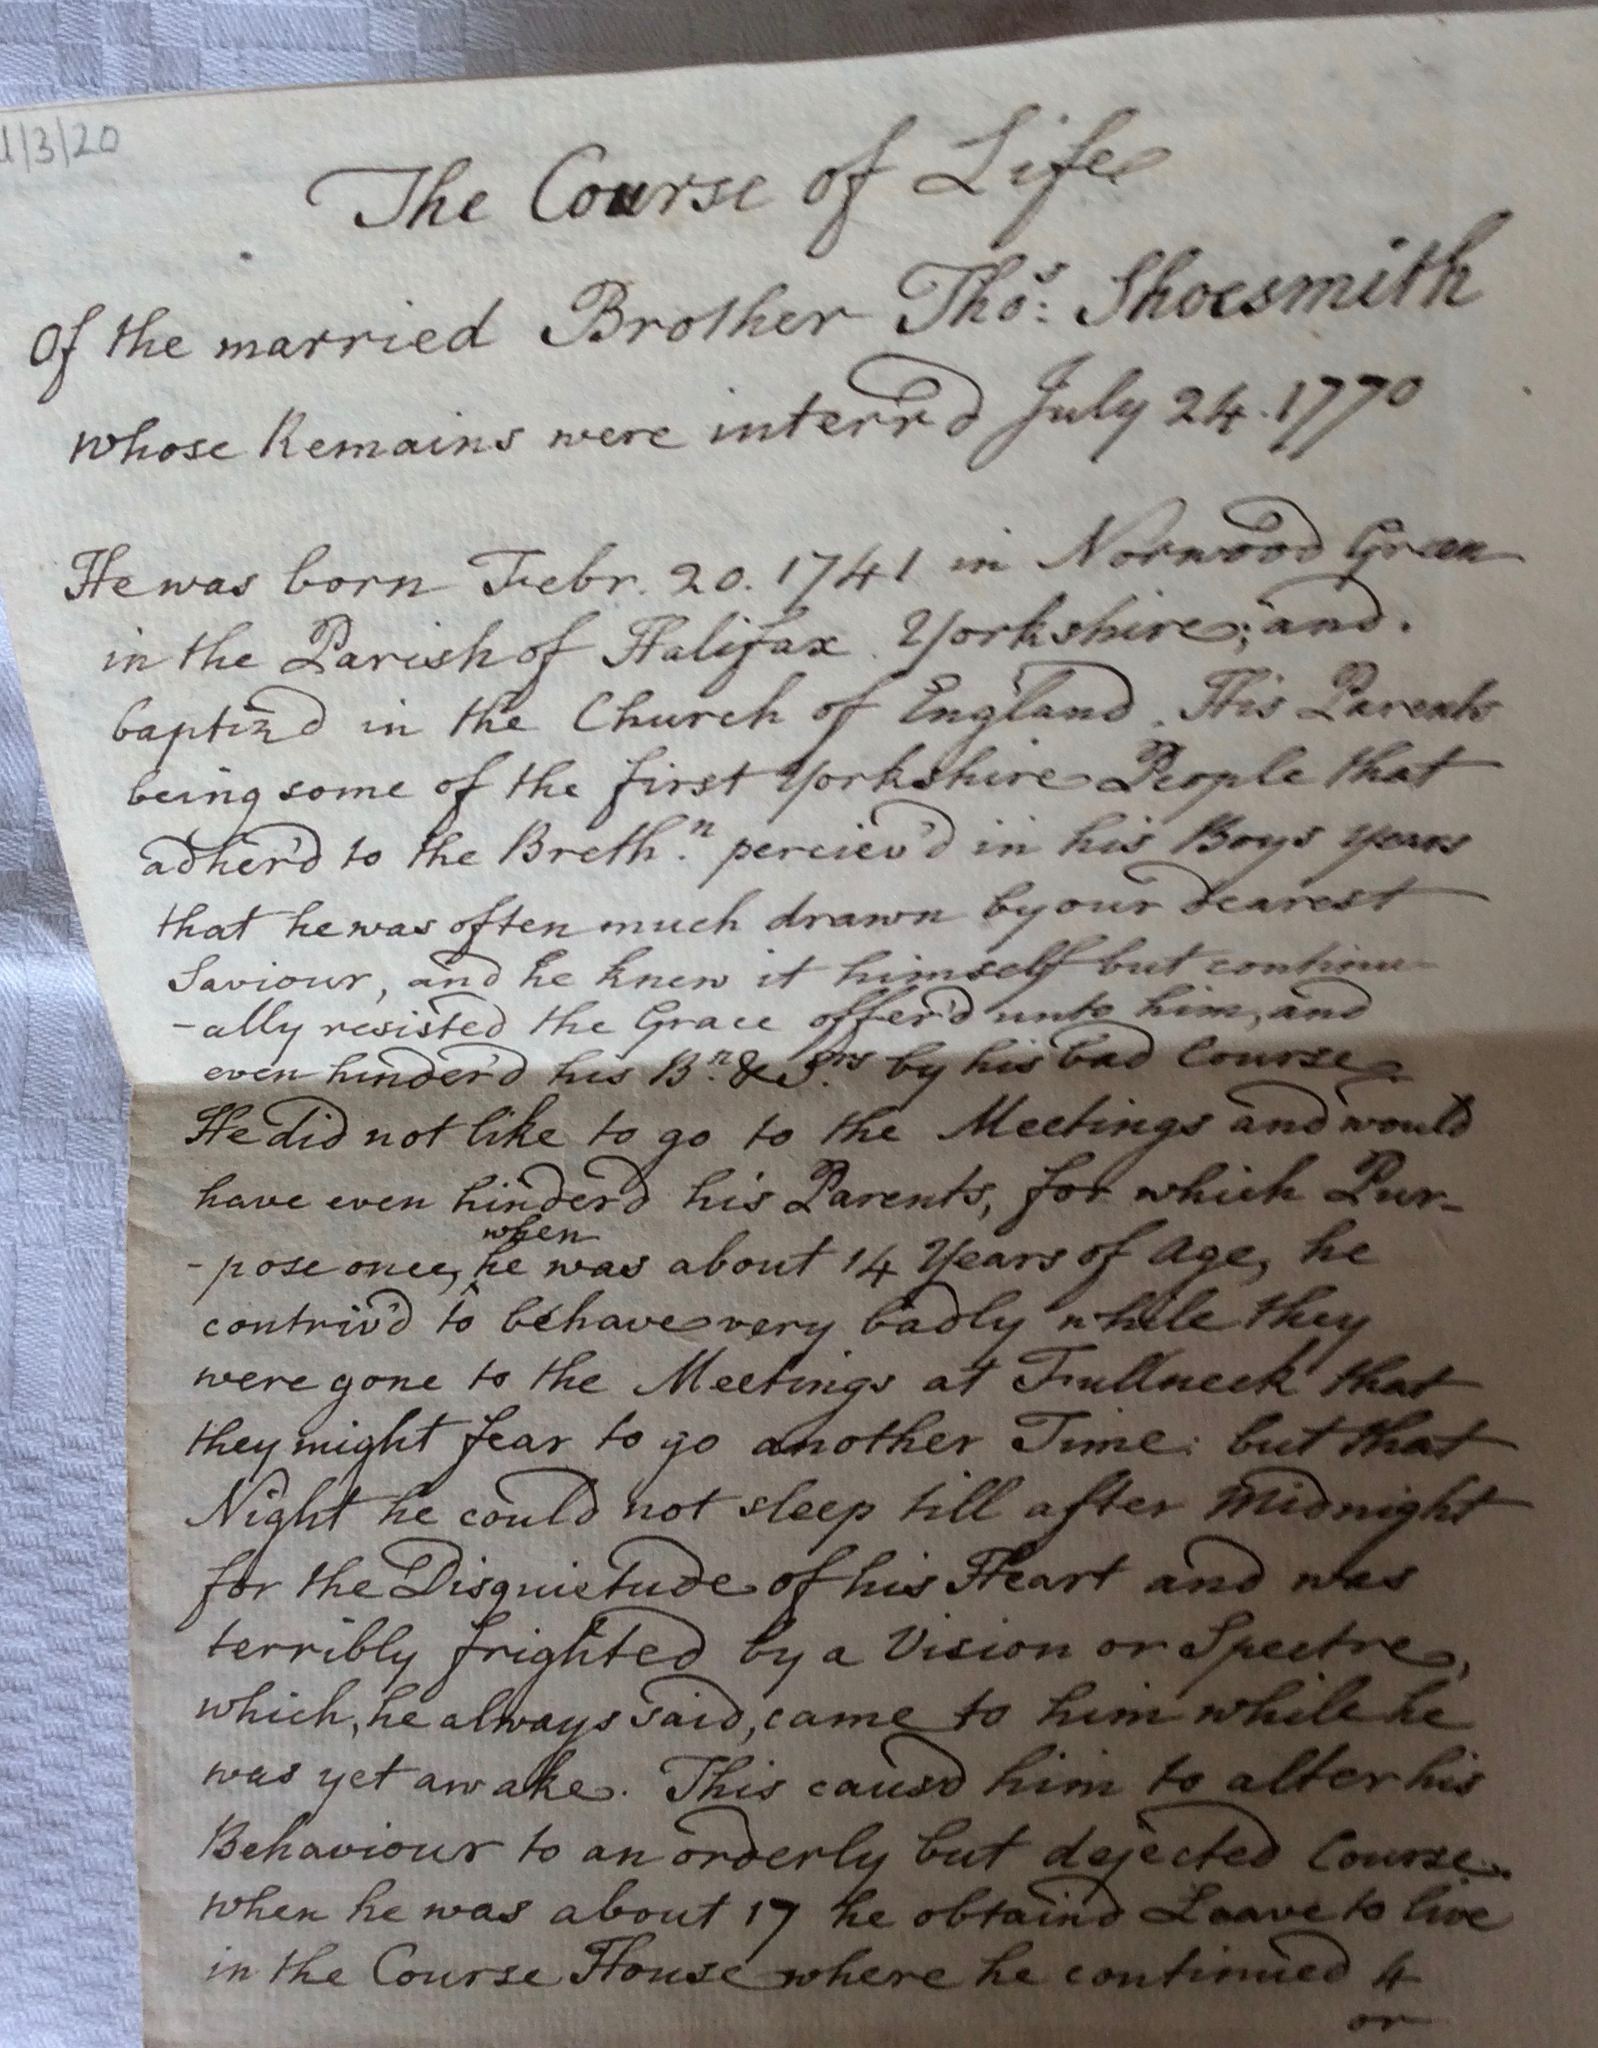 1/3/20
The Course of Life
Of the married Brother Thos: Shoesmith
whose Remains were interr'd July 24. 1770
He was born Febr. 20. 1741 in Norwood Green
in the Parish of Halifax Yorkshire; and
baptiz'd in the Church of England. His Parents
being some of the first Yorkshire People that
adher'd to the Breth.n perciev'd in his Boys Years
that he was often much drawn by our dearest
Saviour, and he knew it himself but continu-
-ally resisted the Grace offer'd unto him, and
even hinder'd his B.n & S.rs by his bad Course.
He did not like to go to the Meetings and would
have even hinder'd his Parents, for which Pur-
when
-pose once, he was about 14 Years of Age, he
contriv'd to behave very badly while they
were gone to the Meetings at Fullneck that
they might fear to go another Time: but that
Night he could not sleep till after Midnight
for the Disquietude of his Heart and was
terribly frighted by a Vision or Spectre,
which, he always said, came to him while he
was yet awake. This caus'd him to alter his
Behaviour to an orderly but dejected Course.
when he was about 17 he obtain'd Leave to live
in the Course House where he continued 4
or